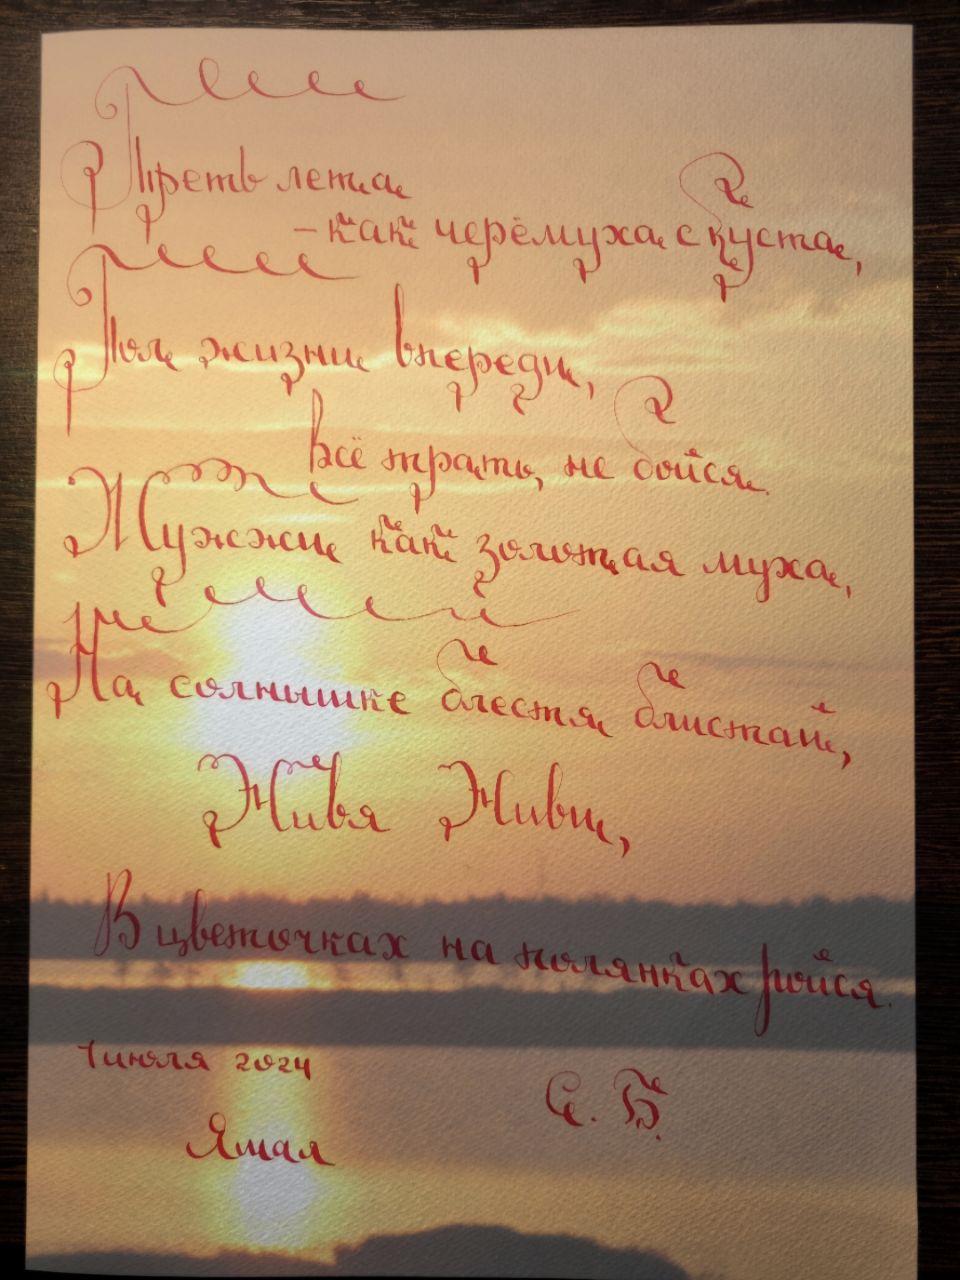 Треть лета
– как черёмуха с куста,
Пол жизни впереди,
всё трать, не бойся.
Жужжи как золотая муха,
На солнышке блестя блистай,
Живя Живи,
В цветочках на полянках ройся.
1 июля 2024
С. Б.
Ямал